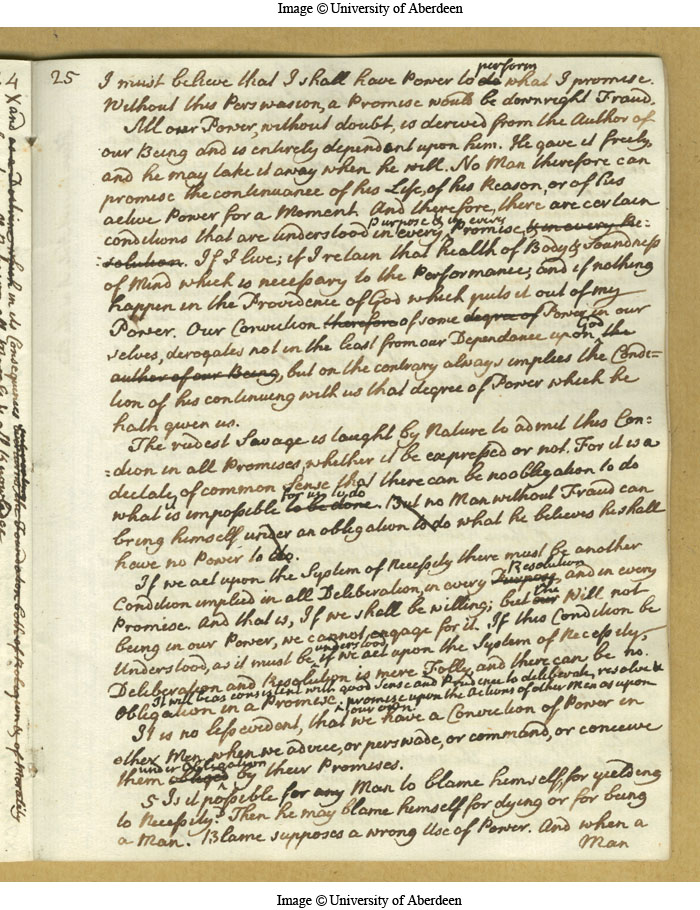 Image © University of Aberdeen
25
I must believe that I shall have Power to do perform what I promise.
Without this Perswasion, a Promise would be downright Fraud.
All our Power, without doubt, is derived from the Author of
our Being and is entirely dependent upon him. He gave it freely,
and he may take it away when he will. No Man therefore can
promise the continuance of his Life, of his Reason, or of his
active Power for a Moment. And therefore, there are certain
conditions that are understood in every purpose & in every Promise & in every Re-
-solution. If I live; if I retain that health of Body & Soundness
of Mind which is necessary to the Performance; and if nothing
happen in the Providence of God which puts it out of my
Power. Our Conviction therefore of some degree of Power in our
selves, derogates not in the least from our Dependance upon God the
author of our Being, but on the contrary always implies the Condi=
tion of his continuing with us that degree of Power which he
hath given us.
The rudest Savage is taught by Nature to admit this Con=
=dition in all Promises, whether it be expressed or not. For it is a
dictate of common Sense that there can be no obligation to do
what is impossible for us to do to be done. But no Man without Fraud can
bring himself under an obligation to do what he believes he shall
have no Power to do.
If we act upon the System of Necessity there must be another
Condition implied in all Deliberation, in every Purpose Resolution, and in every
Promise. And that is, If we shall be willing; but our the Will not
being in our Power, we cannot engage for it. If this Condition be
Understood, as it must be understood if we act upon the System of Necessity,
Deliberation and Resolution is mere Folly and there can be no
Obligation in a Promise.
It will be as consistent with good Sense and Prudence to deliberate, resolve &
promise upon the Actions of other Men as upon
our own
It is no less evident, that we have a Conviction of Power in
other Men, when we advice, or perswade, or command, or conceive
them obliged under obligation by their Promises.
5 Is it possible for any Man to blame himself, for yielding
to Necessity? Then he may blame himself for dying or for being
a Man. Blame supposes a wrong Use of Power. And when a
Man
4
X and as a Doctrine which in its Consequences
the Foundation both of Religion & of Morality
Image © University of Aberdeen